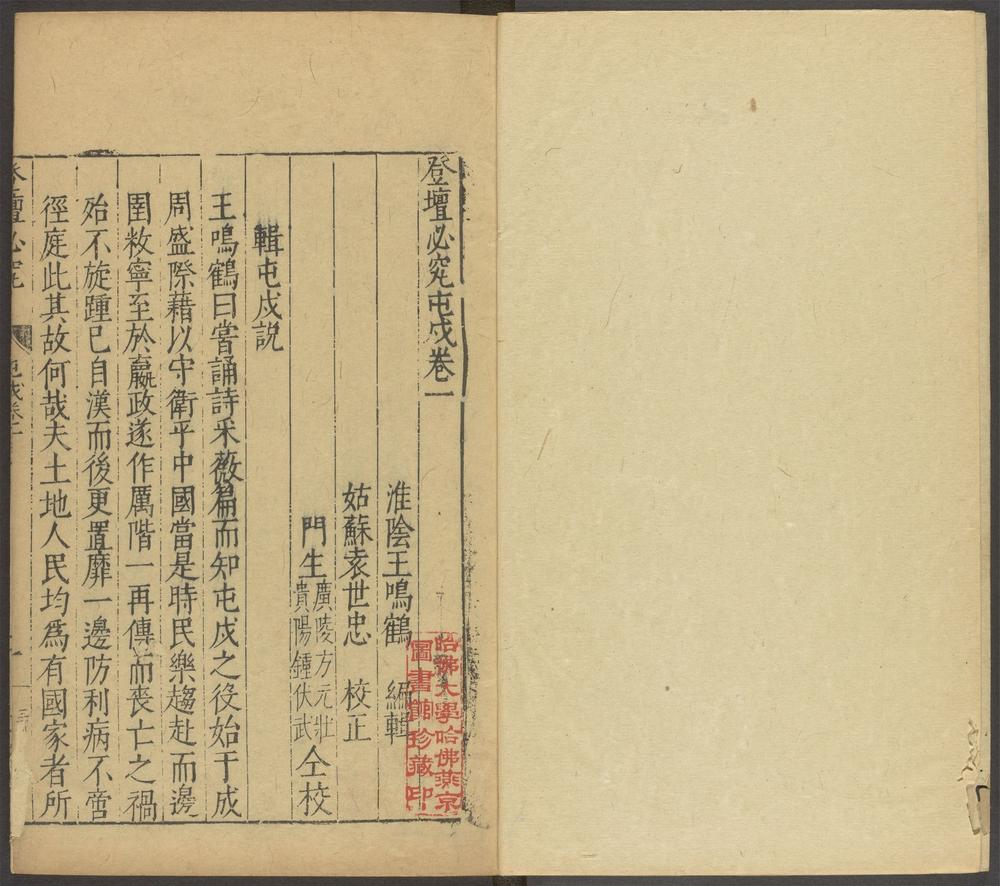 登壇必究屯戍卷一
淮陰王鳴鶴 編輯
姑蘇袁世忠 校正
門生廣陵方元壯貴陽鍾伏武仝校
輯屯戍説
王鳴鶴曰嘗誦詩采薇篇而知屯戍之役始于成
周盛際藉以守衛平中國當是時民樂趨赴而邊
圉敉寧至於嬴政遂作厲階一再傳而喪亡之禍
殆不旋踵已自漢而後更置靡一邊防利病不啻
徑庭此其故何哉夫土地人民均爲有國家者所
登壇必究 屯戍卷一
哈佛大學哈佛燕京
圖書館珍藏印